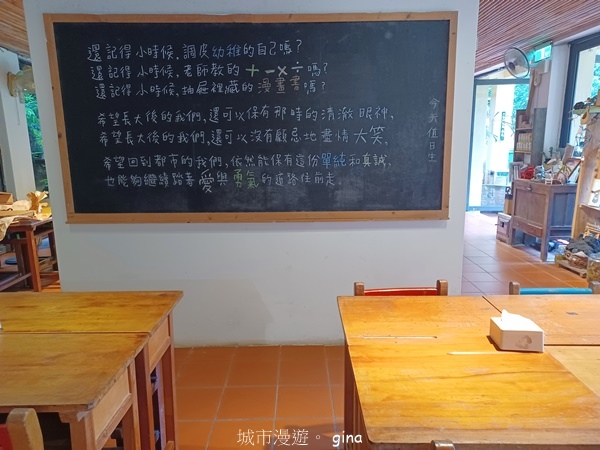 還記得 小時候, 調皮幼稚的自己嗎?
還記得 小時候, 老師教的 + - × ÷ 嗎?
還記得 小時候, 抽屜裡藏的 漫畫書 嗎?
希望長大後的我們, 還可以保有那時的清澈 眼神,
希望長大後的我們, 還可以沒有顧忌地盡情 大笑,
希望回到都市的我們, 依然能保有這份單純和真誠,
也能夠繼續踏著 愛與 勇氣 的道路往前走。
今天值日生:
城市漫遊。gina